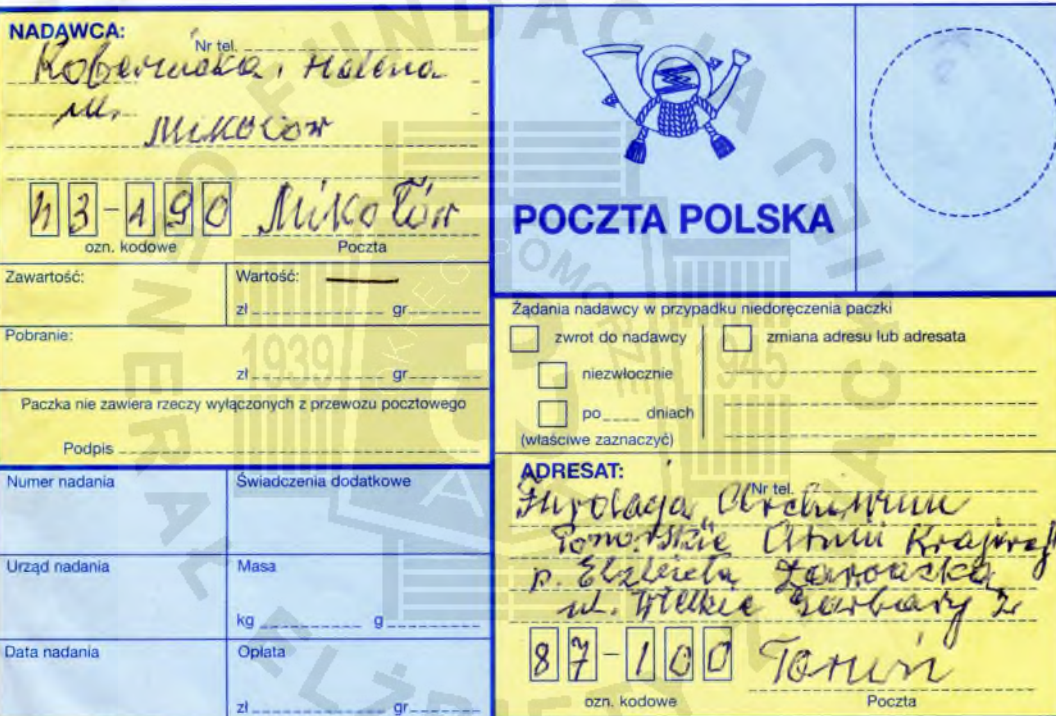 NADAWCA:
Nr tel.
Halena
ul.
Mikołów
43-190 Mikołów
ozn. kodowe Poczta
Zawartość: Wartość: —
zł gr
Pobranie:
zł gr
Paczka nie zawiera rzeczy wyłączonych z przewozu pocztowego
Podpis
Numer nadania Świadczenia dodatkowe
Urząd nadania Masa
kg g
Data nadania Opłata
zł gr
POCZTA POLSKA
Żądania nadawcy w przypadku niedoręczenia paczki
zwrot do nadawcy zmiana adresu lub adresata
niezwłocznie
po dniach
(właściwe zaznaczyć)
ADRESAT:
Nr tel.
Fundacja Archiwum
Pomorskie Armii Krajowej
p. Elżbieta Zawacka
ul. Wielkie Garbary 2
87-100 Toruń
ozn. kodowe Poczta
FUNDACJA GENERAŁ ELŻBIETY ZAWACKIEJ
1939 1945